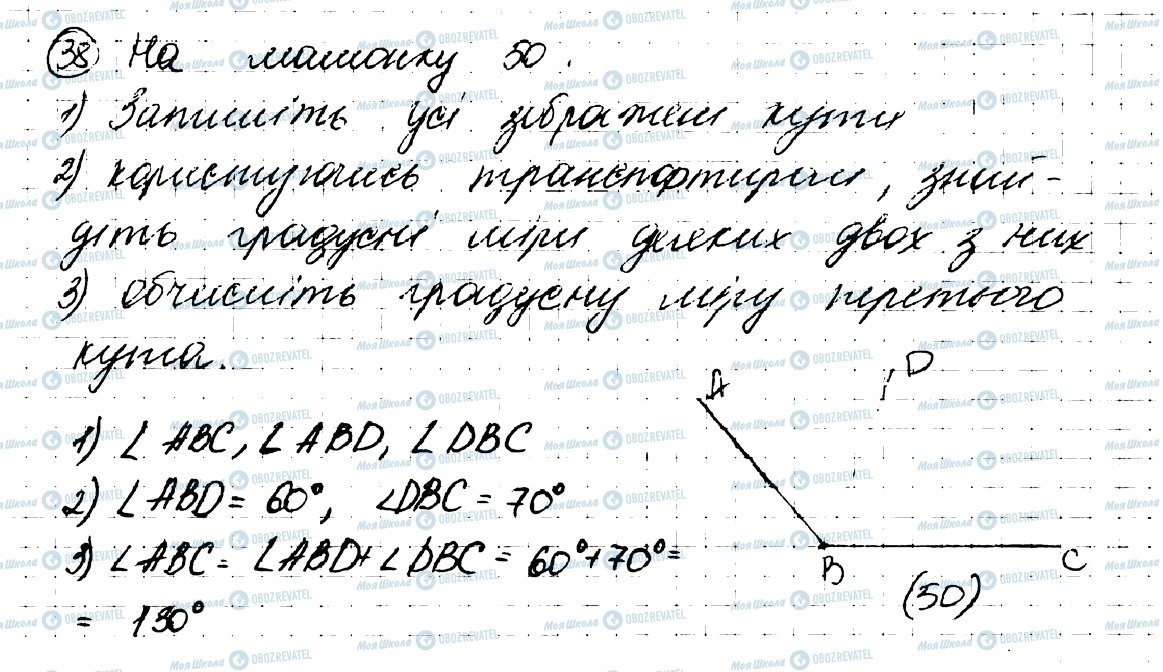 38 На малюнку 50.
1) Запишіть усі зображені кути
2) користуючись транспортиром, знай-
діть градусні міри деяких двох з них
3) обчисліть градусну міру третього
кута.
1) ∠ABC, ∠ABD, ∠DBC
2) ∠ABD = 60°, ∠DBC = 70°
3) ∠ABC = ∠ABD + ∠DBC = 60° + 70° =
= 130°
A
D
B
C
(50)
МояШкола OBOZREVATEL